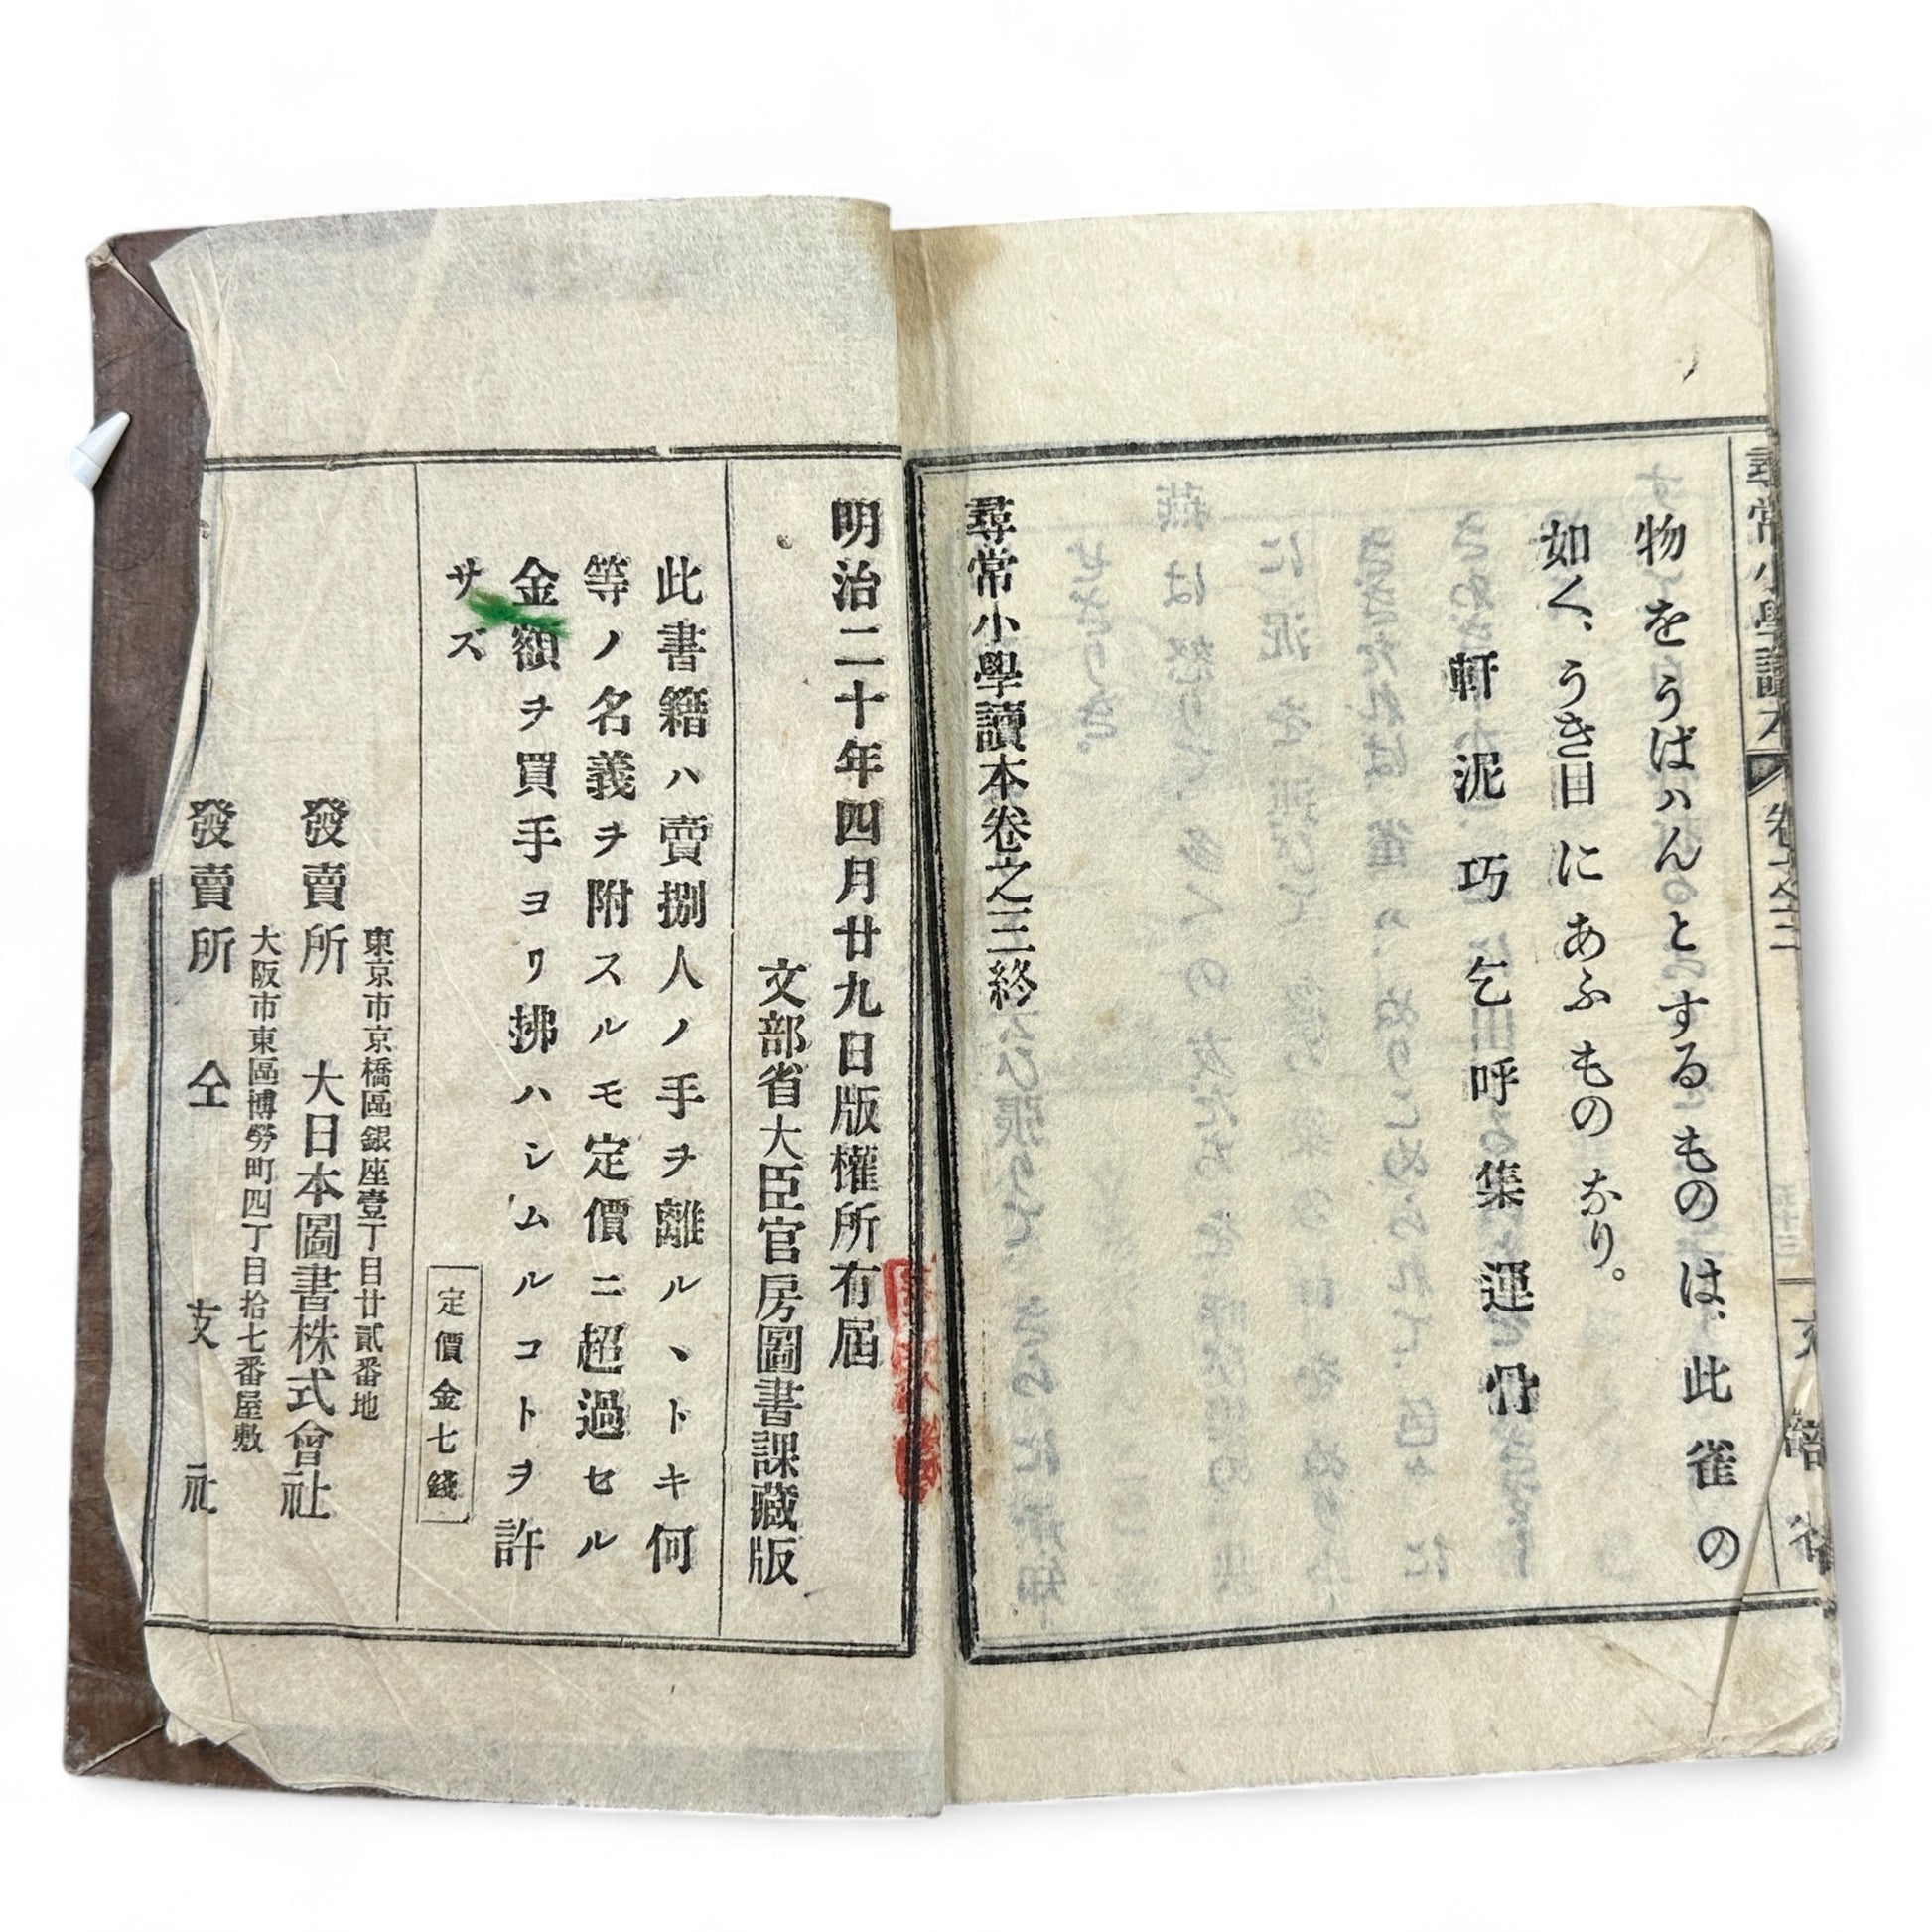 尋常小學讀本
卷之三
文部省
物をうばハんとするものは、此雀の
如く、うき目にあふものなり。
軒泥巧乞出呼集運骨
尋常小學讀本卷之三終
明治二十年四月廿九日版權所有屆
文部省大臣官房圖書課藏版
此書籍ハ賣捌人ノ手ヲ離ルヽトキ何
等ノ名義ヲ附スルモ定價ニ超過セル
金額ヲ買手ヨリ拂ハシムルコトヲ許
サズ
定價金七錢
東京市京橋區銀座壹丁目廿貳番地
發賣所 大日本圖書株式會社
大阪市東區博勞町四丁目拾七番屋敷
發賣所 仝支社